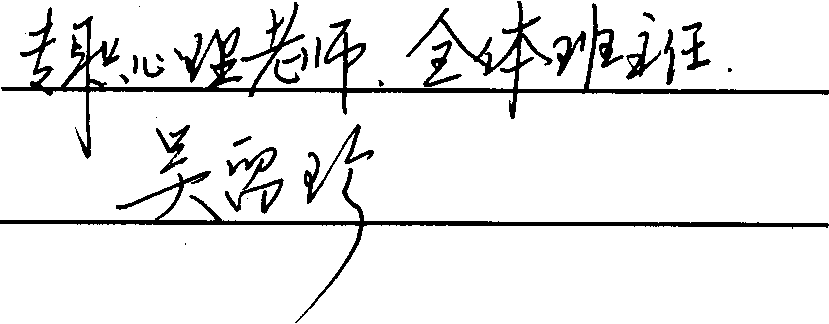 专职心理老师.全体班主任.
吴留珍